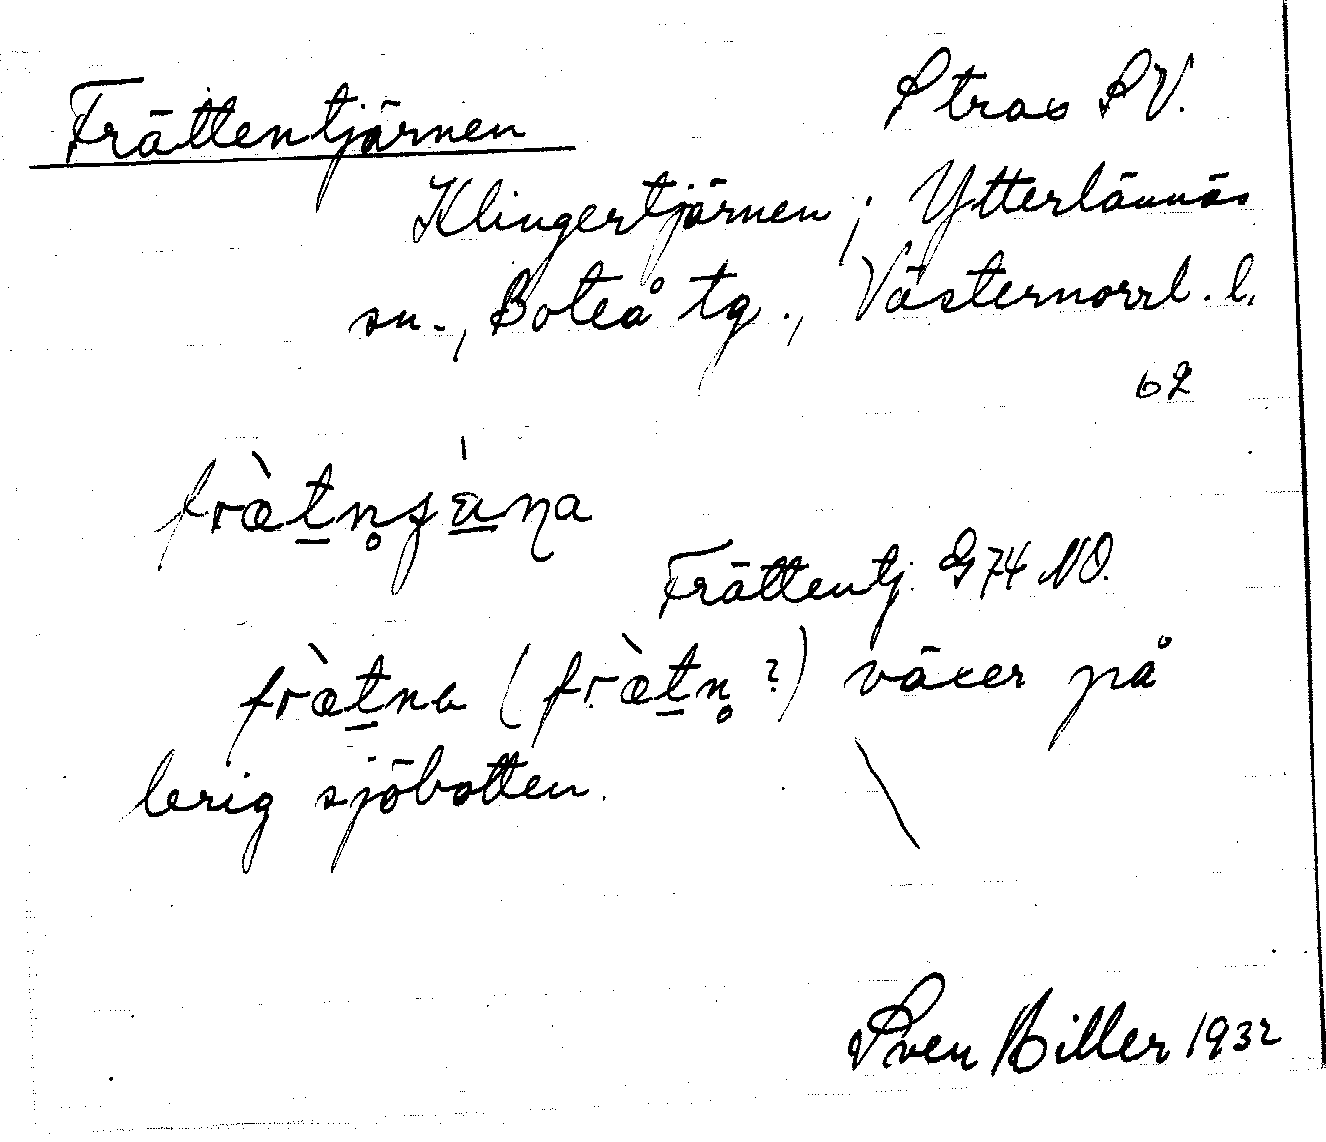 Frättentjärnen
Strax SV.
Klingertjärnen; Ytterlännäs
sn., Boteå tg., Västernorrl. l.
62
fræ̀t̲n̥ɟæ̲̀ɳa
Frättentj. G74 NO.
fræ̀t̲na (fræ̀t̲n̥ ?) växer på
lerig sjöbotten.
Sven Biller 1932